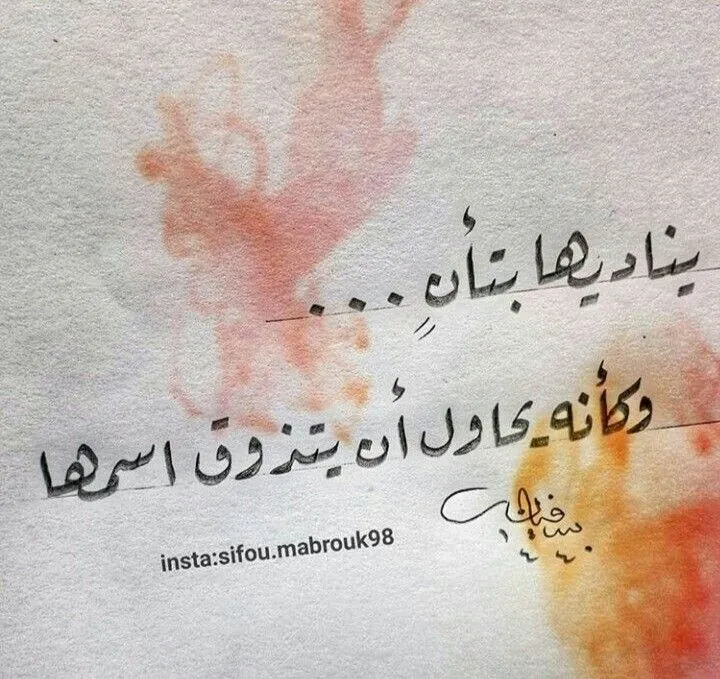 يناديها بتأنٍ ...
وكأنه يحاول أن يتذوق اسمها
١٤٤٠
insta:sifou.mabrouk98